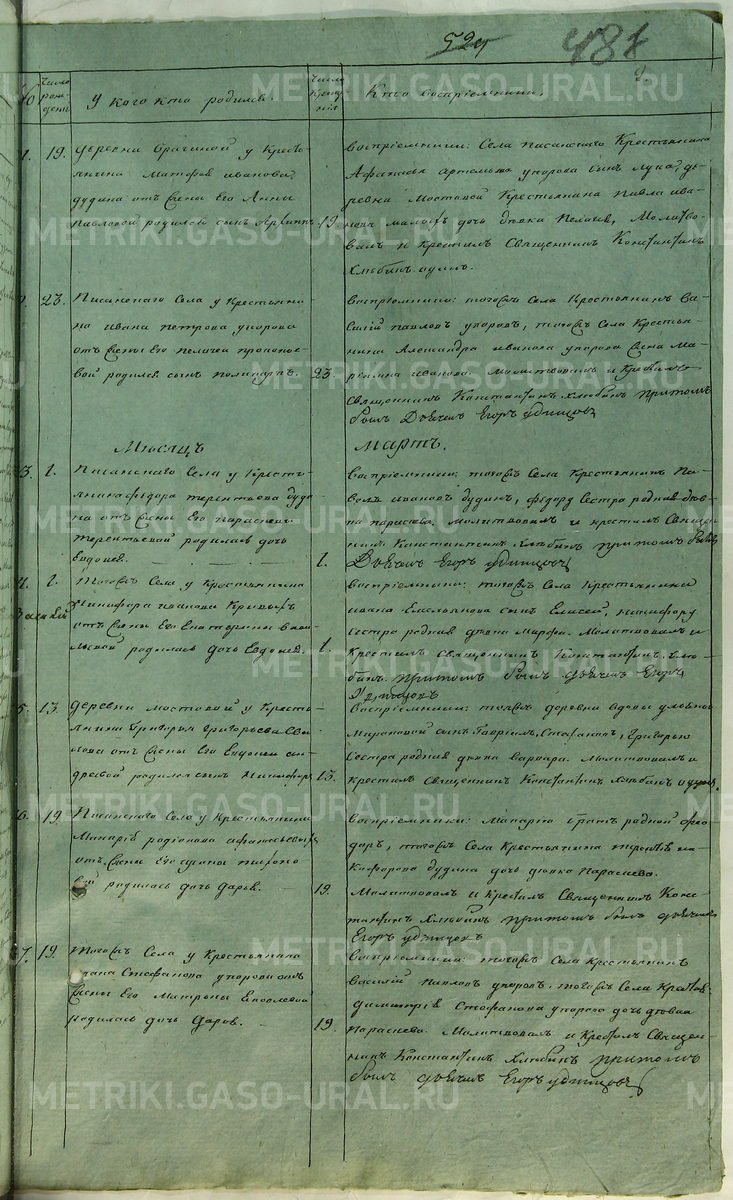 529
481
№
Число рождения
У кого кто родился.
Число крещения
Кто восприемники.
1. 19.
деревни Брагиной у Кресть-
янина Матфея Иванова
Дудина отъ жены Его Анны
Павловой родился сынъ Архиппъ. 19.
Восприемники: Села Писанскаго Крестьянина
Афанасья Артемьева Упорова сынъ Лука, де-
ревни Мостовой Крестьянина Павла Ива-
нова дочь девка Молитво-
валъ и Крестилъ Священникъ Константинъ
Хлебинъ одинъ.
2. 23.
Писанскаго Села у Крестьяни-
на Ивана Петрова Упорова
отъ жены Его Пелагеи Прокопье-
вой родился сынъ Поликарпъ. 23.
Восприемники: тогожъ Села Крестьянинъ Ва-
силий Павловъ Упоровъ, тогожъ Села Крестья-
нина Александра Иванова Упорова жена Ма-
Иванова. Молитвовалъ и Крестилъ
Священникъ Константинъ Хлебинъ притомъ
былъ Дьячекъ Егоръ Удинцовъ
Месяцъ
Мартъ.
3. 1.
Писанскаго Села у Кресть-
янина Федора Терентьева Дуди-
на отъ жены Его Парасковьи
Терентьевой родилась дочь
Евдокея. 1.
Восприемники: тогожъ Села Крестьянинъ Па-
велъ Ивановъ Дудинъ, Федору Сестра родная дев-
ка Молитвовалъ и крестилъ Священ-
никъ Константинъ Хлебинъ притомъ былъ
Дьячекъ Егоръ Удинцовъ
4. 1.
Тогожъ Села у Крестьянина
Никифора Иванова Кривыхъ
отъ жены Его Екатерины
родилась дочь Евдокея. 1.
Восприемники: тогожъ Села Крестьянина
Ивана Емельянова сынъ Елисей, Никифору
Сестра родная девка Марфа. Молитвовалъ и
Крестилъ Священникъ Константинъ Хле-
бинъ. притомъ былъ Дьячекъ Егоръ
Удинцовъ
5. 13.
Деревни Мостовой у Кресть-
янина Григорья Григорьева
отъ жены Его Евдокеи Ан-
дреевой родился сынъ Никифоръ. 13.
Восприемники: тойжъ деревни вдовы Ульяны
Мироновой сынъ Стефановъ, Григорью
Сестра родная девка Варвара. Молитвовалъ и
Крестилъ Священникъ Константинъ Хлебинъ одинъ.
6. 19.
Писанскаго Села у Крестьянина
Макария Родионова Афанасьевыхъ
отъ жены Его Ирины
родилась дочь Дарья. 19.
Восприемники: Макарию братъ родной Фео-
доръ, тогожъ Села Крестьянина Терентья Ни-
кифорова Дудина дочь девка Параскева.
Молитвовалъ и Крестилъ Священникъ Конс-
тантинъ Хлебинъ притомъ былъ Дьячекъ
Егоръ Удинцовъ
7. 19.
Тогожъ Села у Крестьянина
Стефанова Упорова отъ
жены Его Матроны Яковлевой
родилась дочь Дарья. 19.
Восприемники: тогожъ Села Крестьянинъ
Василий Павловъ Упоровъ, тогожъ Села Крестьян.
Димитрия Стефанова Упорова дочь девка
Параскева. Молитвовалъ и Крестилъ Священ-
никъ Константинъ Хлебинъ притомъ
былъ Дьячекъ Егоръ Удинцовъ
METRIKI.GASO-URAL.RU